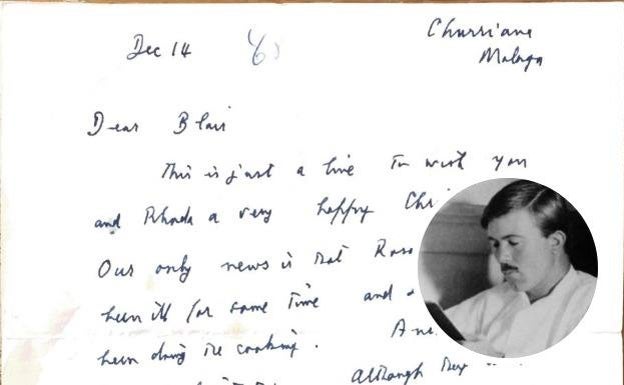 Churriana
Dec 14
Malaga
Dear Blair
This is just a line to wish you
and Rhoda a very happy Chri
Our only news is that Rosa
been ill for some time and
been doing the cooking.
Although they